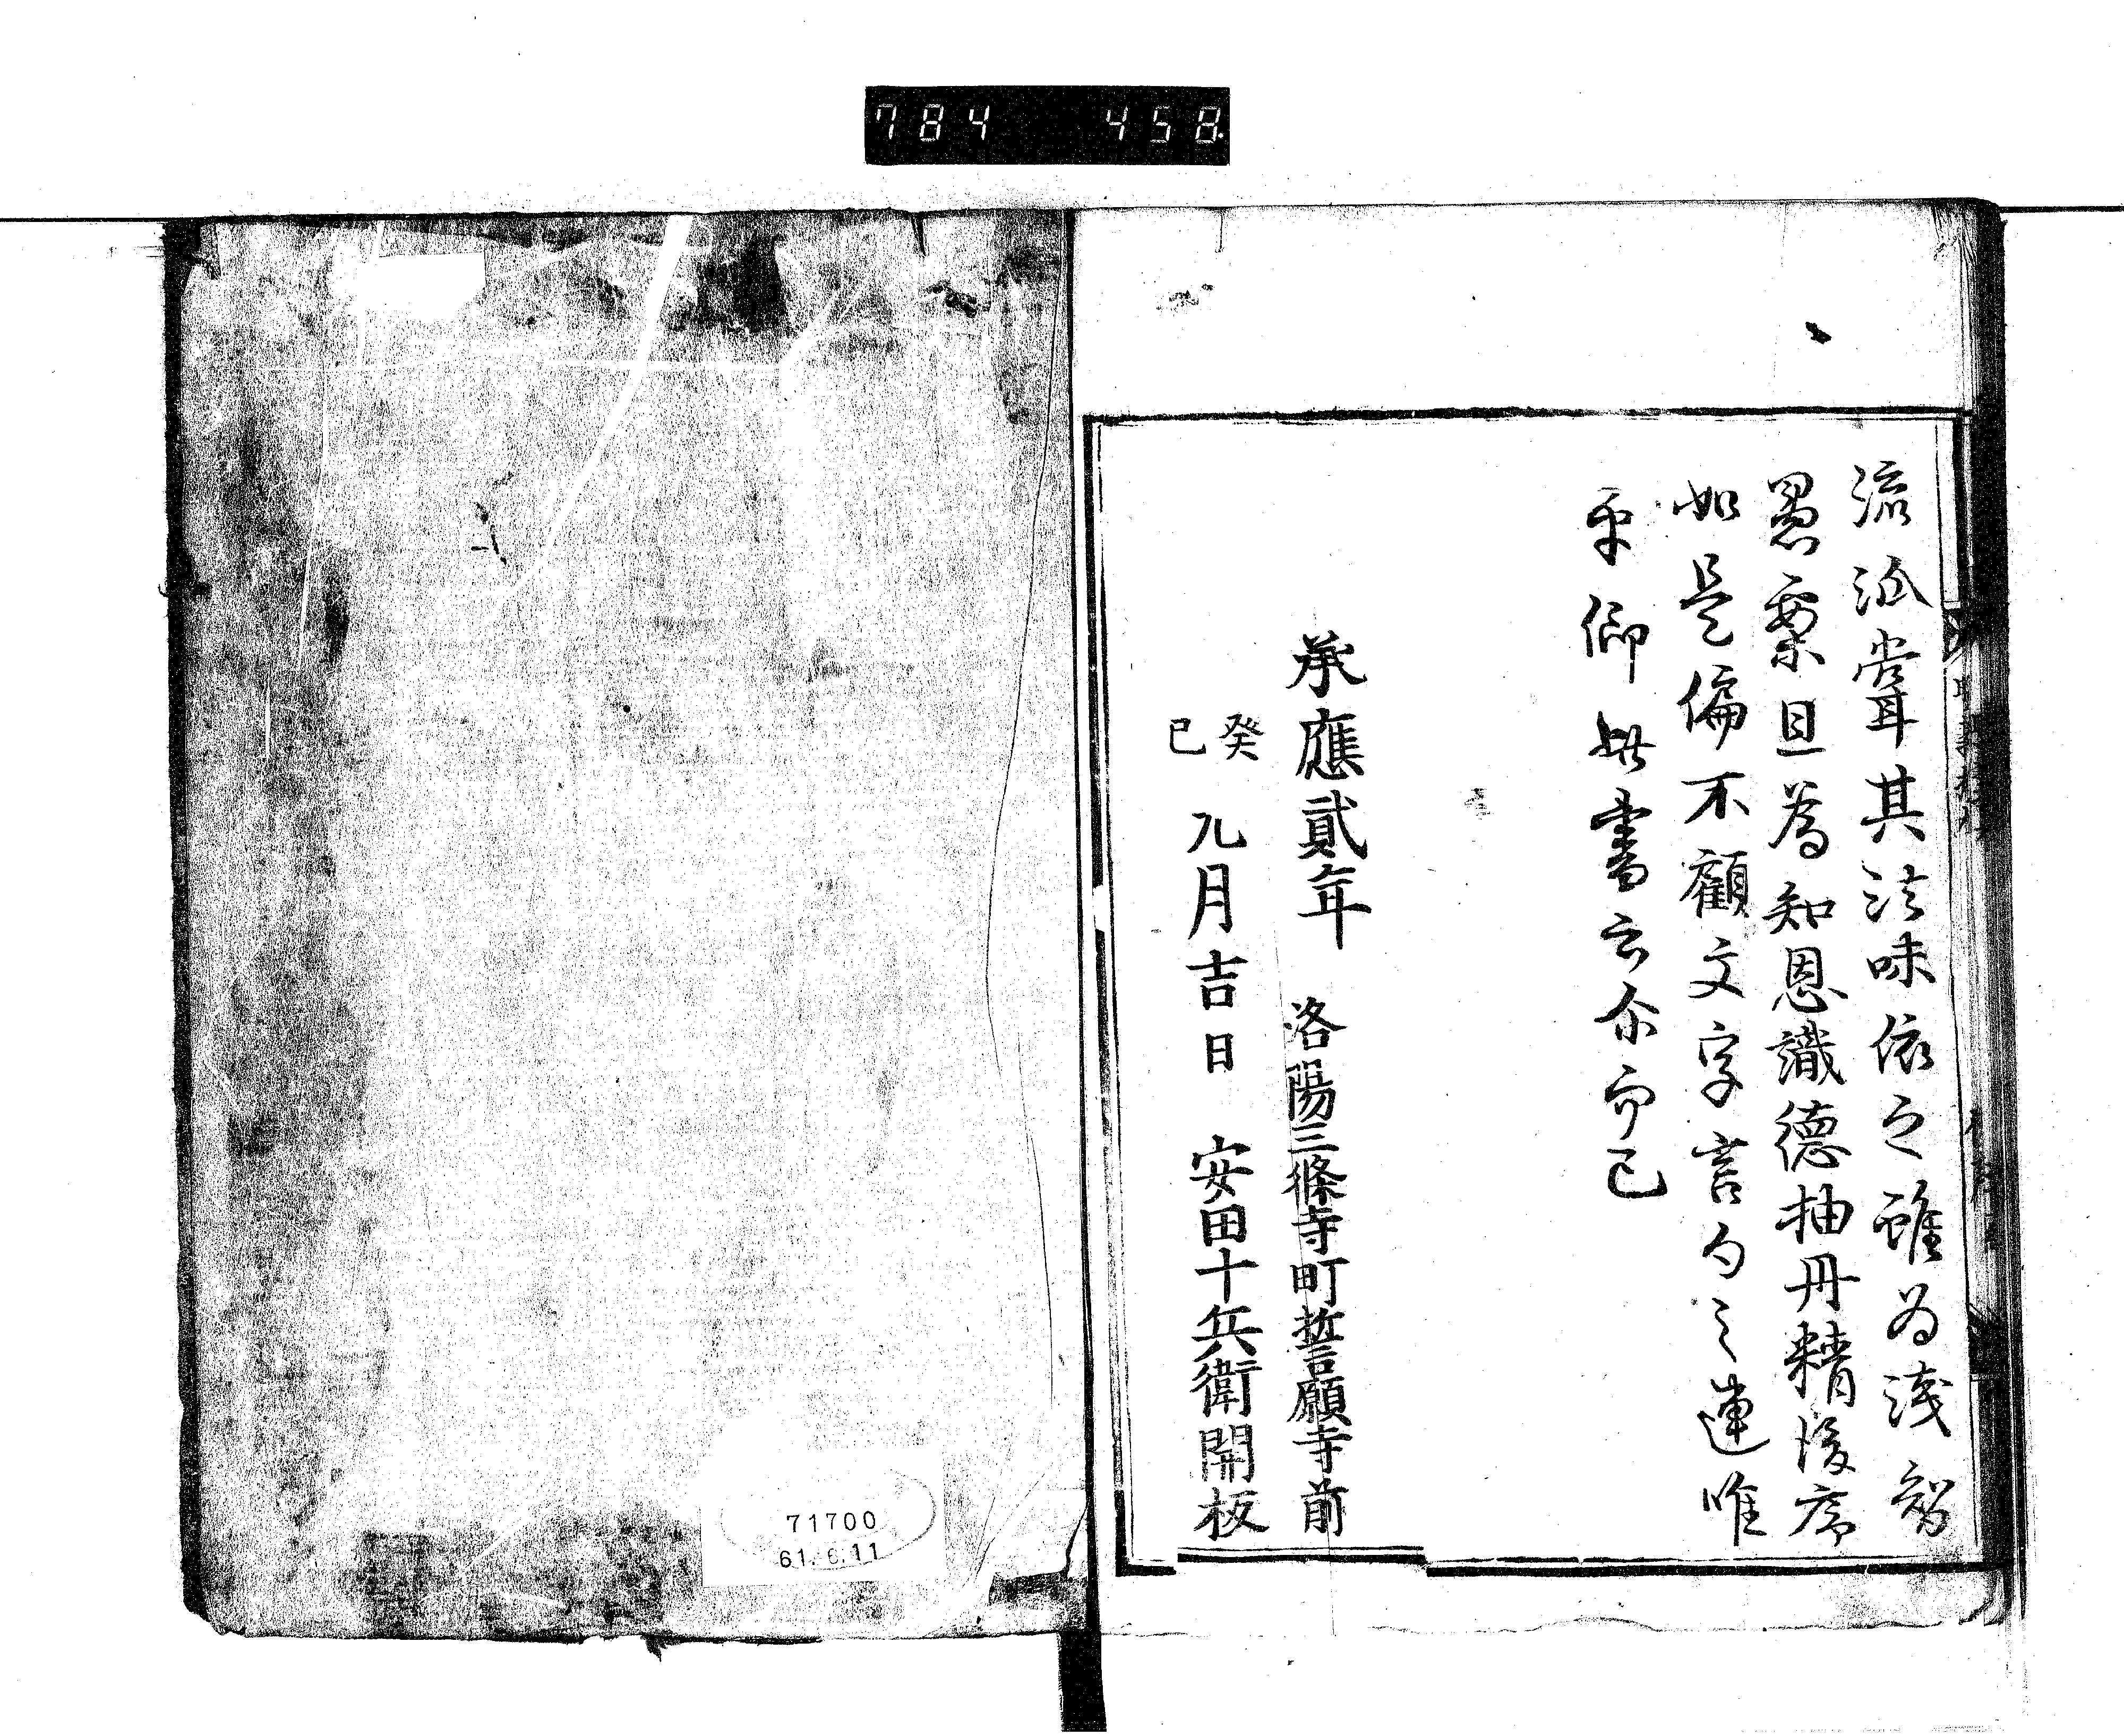 784 458
流派嘗其法味依之雖為淺智
愚案且為知恩識德抽丹精後序
如是偏不顧文字言句之連唯
平仰
書云尓而已
承應貳年 洛陽三條寺町誓願寺前
癸巳 九月吉日 安田十兵衛開板
71700
61.6.11